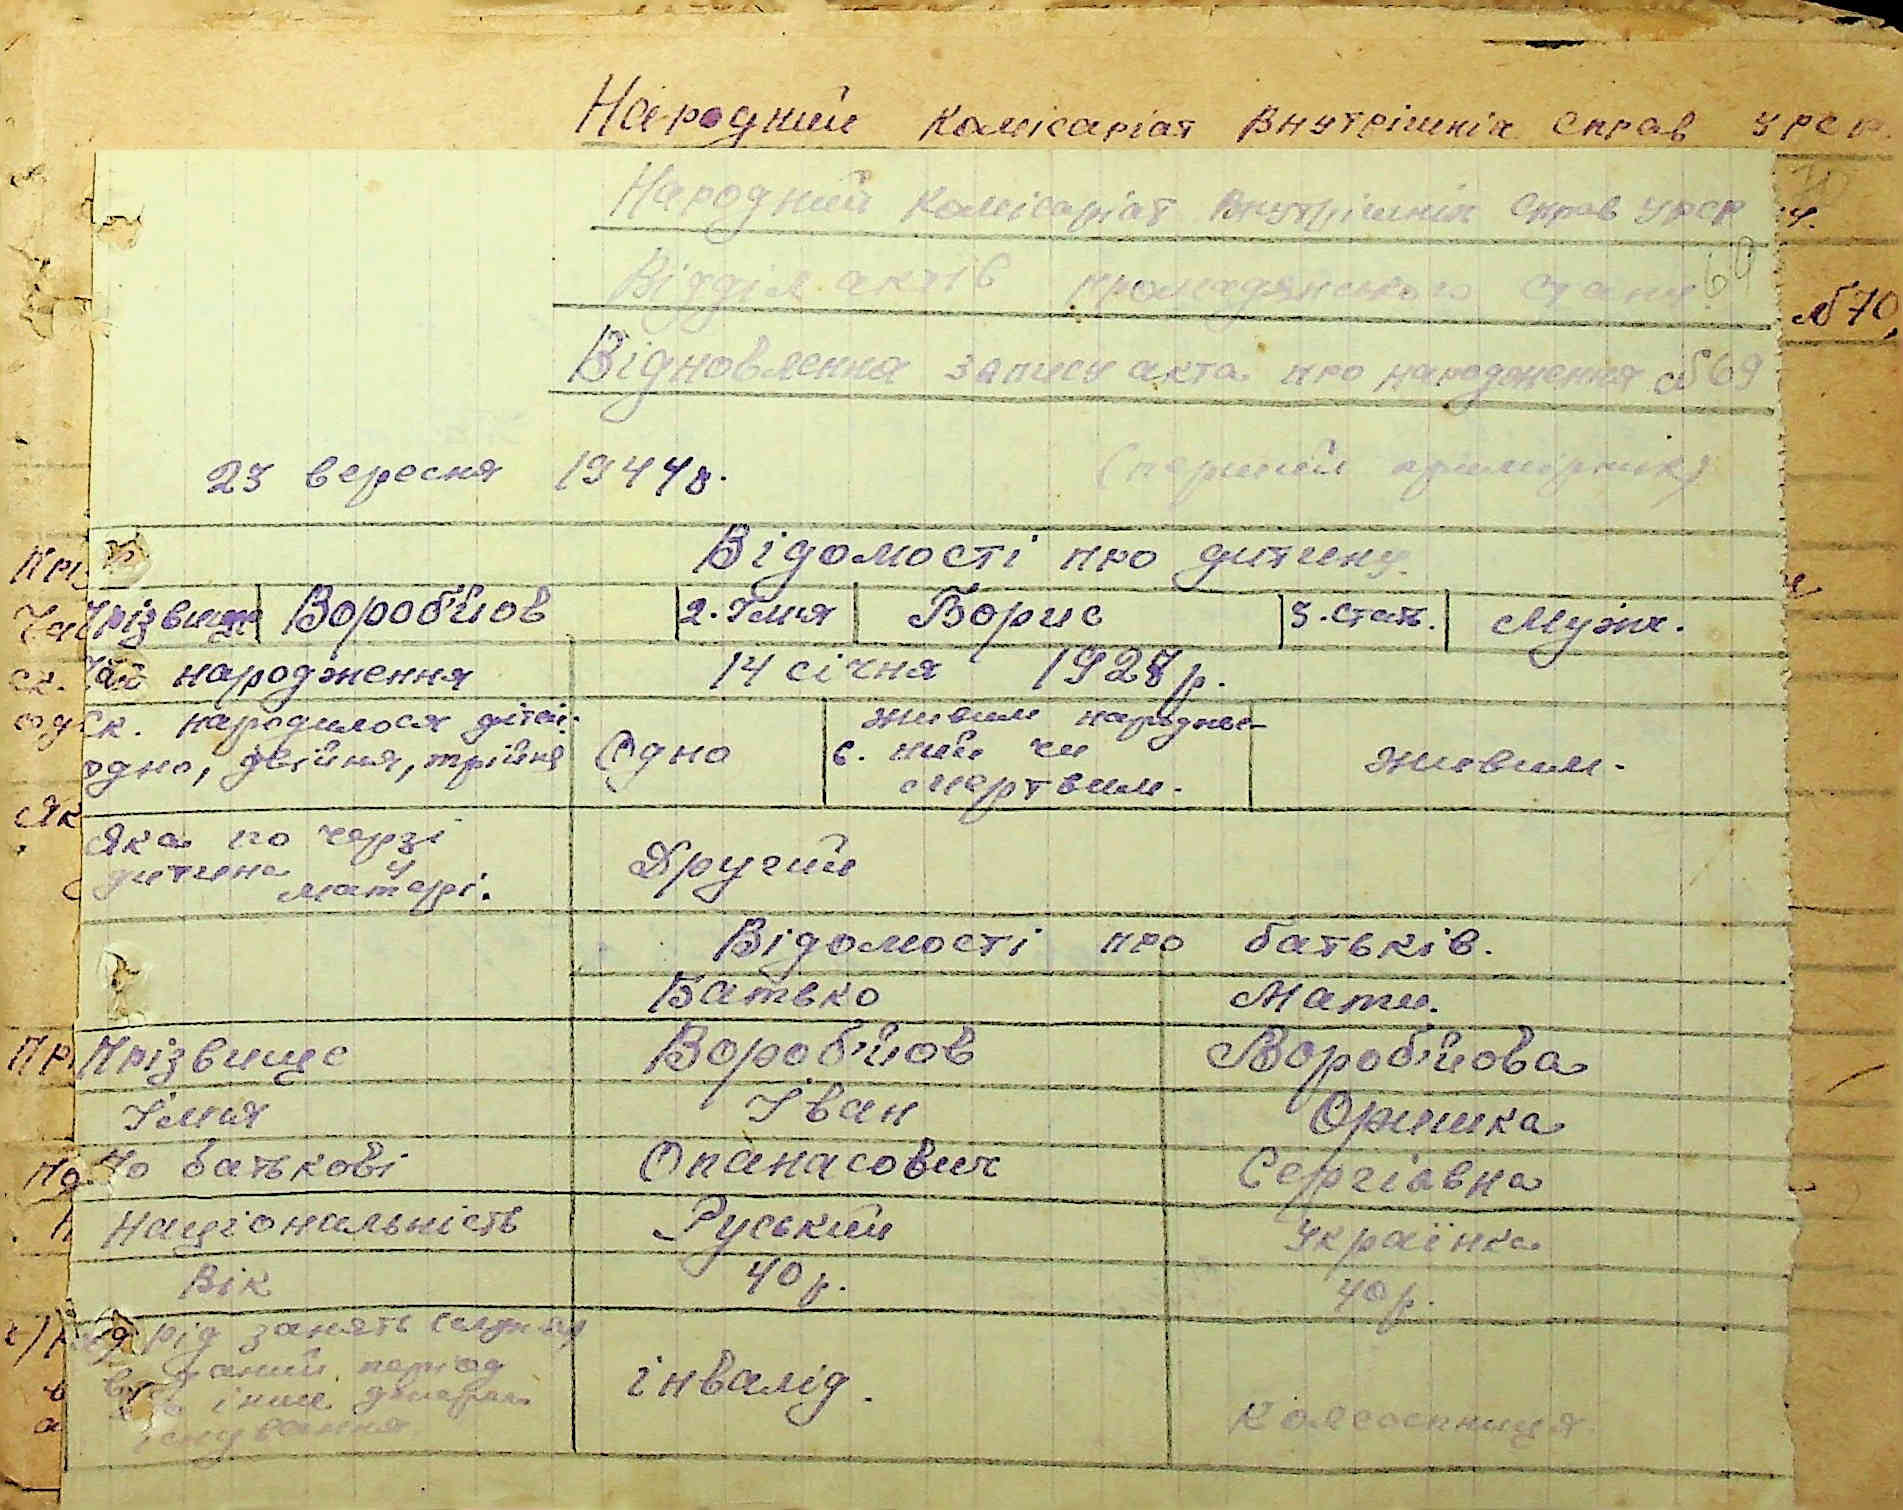 Народний Комісаріат Внутрішніх Справ УРСР.
Народний Комісаріат Внутрішніх Справ УРСР
Відділ актів громадянського стану 69
Відновлення запису акта про народження №69
№70
23 вересня 1944 р. (перший примірник)
Відомості про дитину
Прізвище Вороб'йов 2. Імля Борис 3. Стать. Мужч.
Час народження 14 січня 1927 р.
Ск. народилося дітей: одно, двійня, трійня
Одно
6. живим народжений чи мертвим.
живим.
Яка по черзі
дитина у матері.
Другий
Відомості про батьків.
Батько Мати.
Прізвище Вороб'йов Вороб'йова
Імля Іван Оришка
По батькові Опанасович Сергіївна
Національність Руський Українка
Вік 40 р. 40 р.
рід занять
період
інше
існування
інвалід.
Колгоспниця